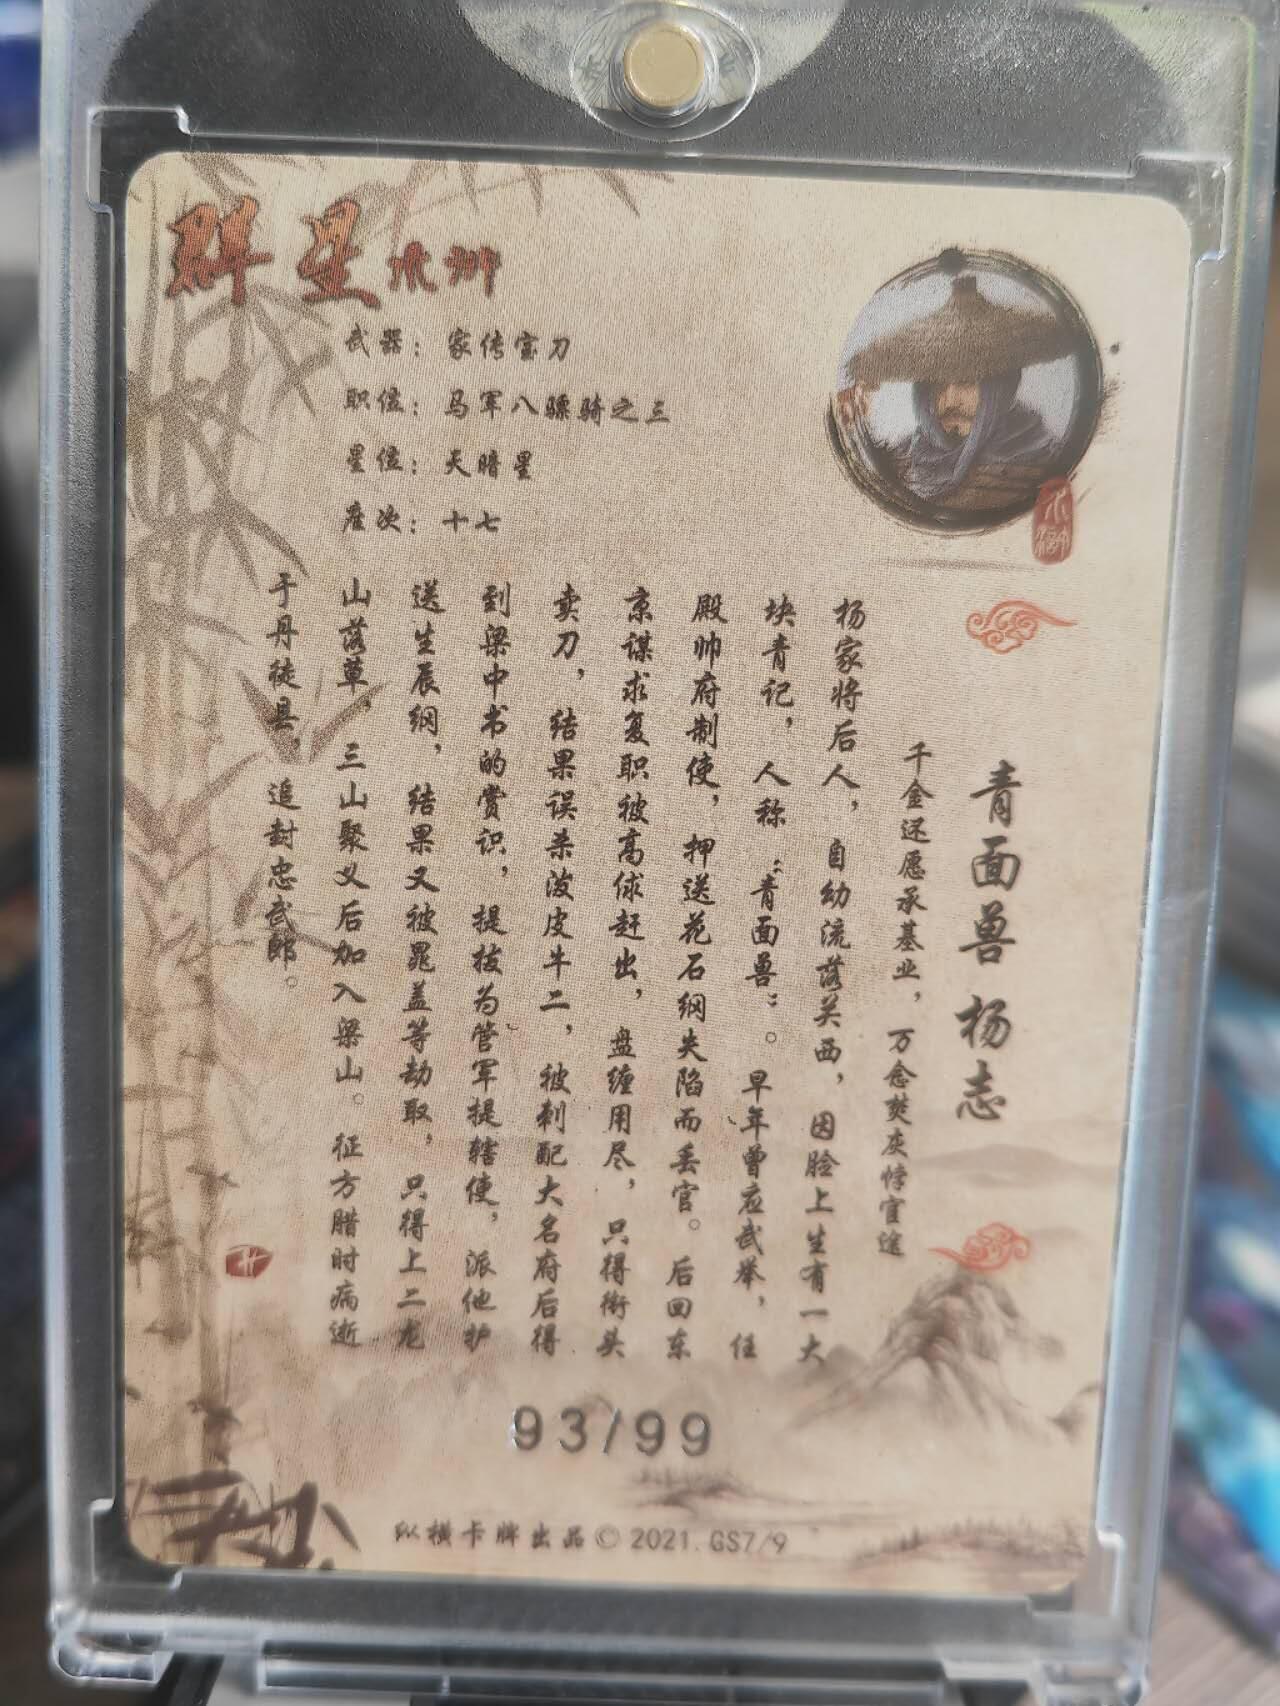 群星水浒
武器：家传宝刀
职位：马军八骠骑之三
星位：天暗星
座次：十七
水浒
青面兽 杨志
千金还愿承基业，万念焚灰悖宦途
杨家将后人，自幼流落关西，因脸上生有一大
块青记，人称“青面兽”。早年曾应武举，任
殿帅府制使，押送花石纲失陷而丢官。后回东
京谋求复职被高俅赶出，盘缠用尽，只得街头
卖刀，结果误杀泼皮牛二，被刺配大名府后得
到梁中书的赏识，提拔为管军提辖使，派他护
送生辰纲，结果又被晁盖等劫取，只得上二龙
山落草，三山聚义后加入梁山。征方腊时病逝
于丹徒县，追封忠武郎。
93/99
纵横卡牌出品©2021.GS7/9